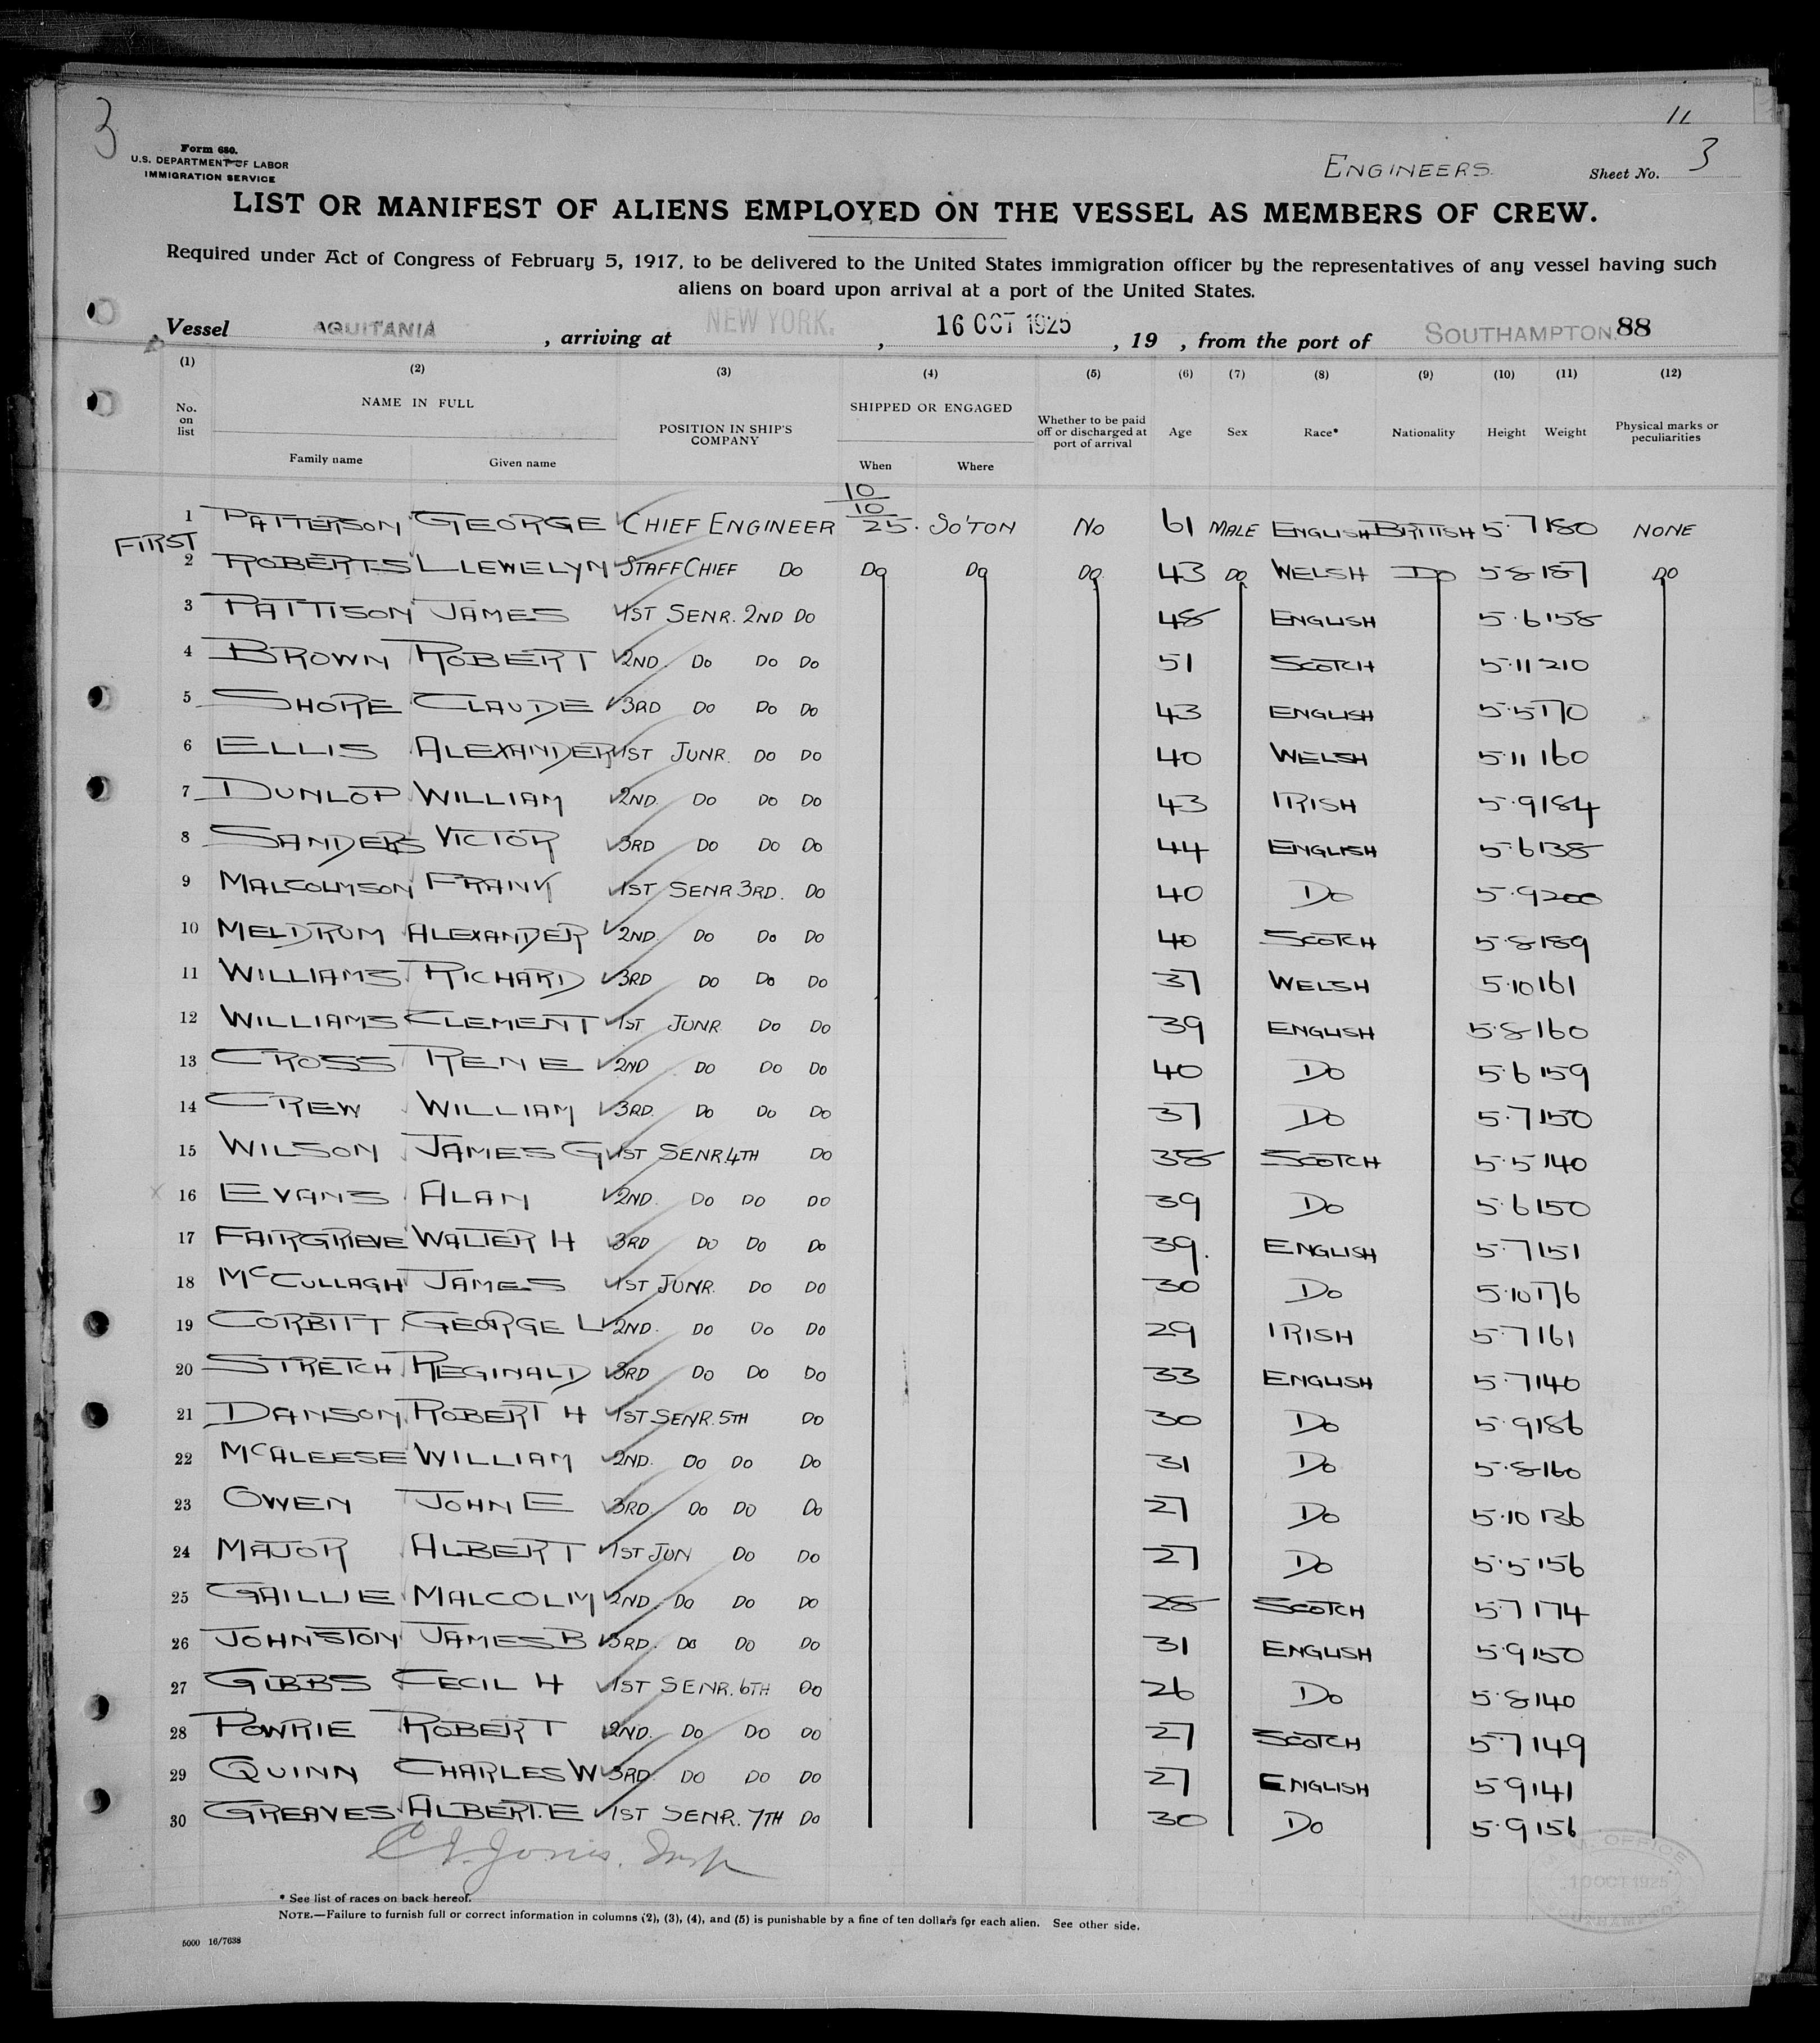 3
11
Form 680.
U.S. DEPARTMENT OF LABOR
IMMIGRATION SERVICE
ENGINEERS.
Sheet No. 3
LIST OR MANIFEST OF ALIENS EMPLOYED ON THE VESSEL AS MEMBERS OF CREW.
Required under Act of Congress of February 5, 1917, to be delivered to the United States immigration officer by the representatives of any vessel having such
aliens on board upon arrival at a port of the United States.
Vessel AQUITANIA, arriving at NEW YORK., 16 OCT 1925, 19 , from the port of SOUTHAMPTON. 88
(1) (2) (3) (4) (5) (6) (7) (8) (9) (10) (11) (12)
No. on list NAME IN FULL Family name Given name POSITION IN SHIP'S COMPANY SHIPPED OR ENGAGED When Where Whether to be paid off or discharged at port of arrival Age Sex Race* Nationality Height Weight Physical marks or peculiarities
1 PATTERSON GEORGE CHIEF ENGINEER 10/10/25. SO'TON NO 61 MALE ENGLISH BRITISH 5.7 180 NONE
FIRST
2 ROBERTS LLEWELYN STAFF CHIEF DO DO DO DO 43 DO WELSH DO 5 8 187 DO
3 PATTISON JAMES 1ST SENR. 2ND DO 48 ENGLISH 5.6 158
4 BROWN ROBERT 2ND. DO DO DO 51 SCOTCH 5.11 210
5 SHORE CLAUDE 3RD DO DO DO 43 ENGLISH 5.5 170
6 ELLIS ALEXANDER 1ST JUNR. DO DO 40 WELSH 5.11 160
7 DUNLOP WILLIAM 2ND. DO DO DO 43 IRISH 5.9 184
8 SANDERS VICTOR 3RD DO DO DO 44 ENGLISH 5.6 138
9 MALCOLMSON FRANK 1ST SENR 3RD. DO 40 DO 5.9 200
10 MELDRUM ALEXANDER 2ND. DO DO DO 40 SCOTCH 5.8 189
11 WILLIAMS RICHARD 3RD DO DO DO 37 WELSH 5.10 161
12 WILLIAMS CLEMENT 1ST JUNR. DO DO 39 ENGLISH 5.8 160
13 CROSS RENE 2ND DO DO DO 40 DO 5.6 159
14 CREW WILLIAM 3RD. DO DO DO 37 DO 5.7 150
15 WILSON JAMES G 1ST SENR. 4TH DO 38 SCOTCH 5.5 140
16 EVANS ALAN 2ND. DO DO DO 39 DO 5.6 150
17 FAIRGRIEVE WALTER H 3RD DO DO DO 39. ENGLISH 5.7 151
18 McCULLAGH JAMES 1ST JUNR. DO DO 30 DO 5.10 176
19 CORBITT GEORGE L 2ND. DO DO DO 29 IRISH 5.7 161
20 STRETCH REGINALD 3RD DO DO DO 33 ENGLISH 5.7 140
21 DANSON ROBERT H 1ST SENR. 5TH DO 30 DO 5.9 186
22 McALEESE WILLIAM 2ND. DO DO DO 31 DO 5.8 160
23 OWEN JOHN E 3RD. DO DO DO 27 DO 5.10 136
24 MAJOR ALBERT 1ST JUN DO DO 27 DO 5.5 156
25 GAILLIE MALCOLM 2ND. DO DO DO 28 SCOTCH 5.7 174
26 JOHNSTON JAMES B 3RD. DO DO DO 31 ENGLISH 5.9 150
27 GIBBS CECIL H 1ST SENR. 6TH DO 26 DO 5.8 140
28 POWRIE ROBERT 2ND. DO DO DO 27 SCOTCH 5.7 149
29 QUINN CHARLES W 3RD. DO DO DO 27 ENGLISH 5 9 141
30 GREAVES ALBERT. E 1ST SENR. 7TH DO 30 DO 5.9 156
* See list of races on back hereof.
NOTE.—Failure to furnish full or correct information in columns (2), (3), (4), and (5) is punishable by a fine of ten dollars for each alien. See other side.
5000 16/7638
OFFICE
10 OCT 1925
SOUTHAMPTON